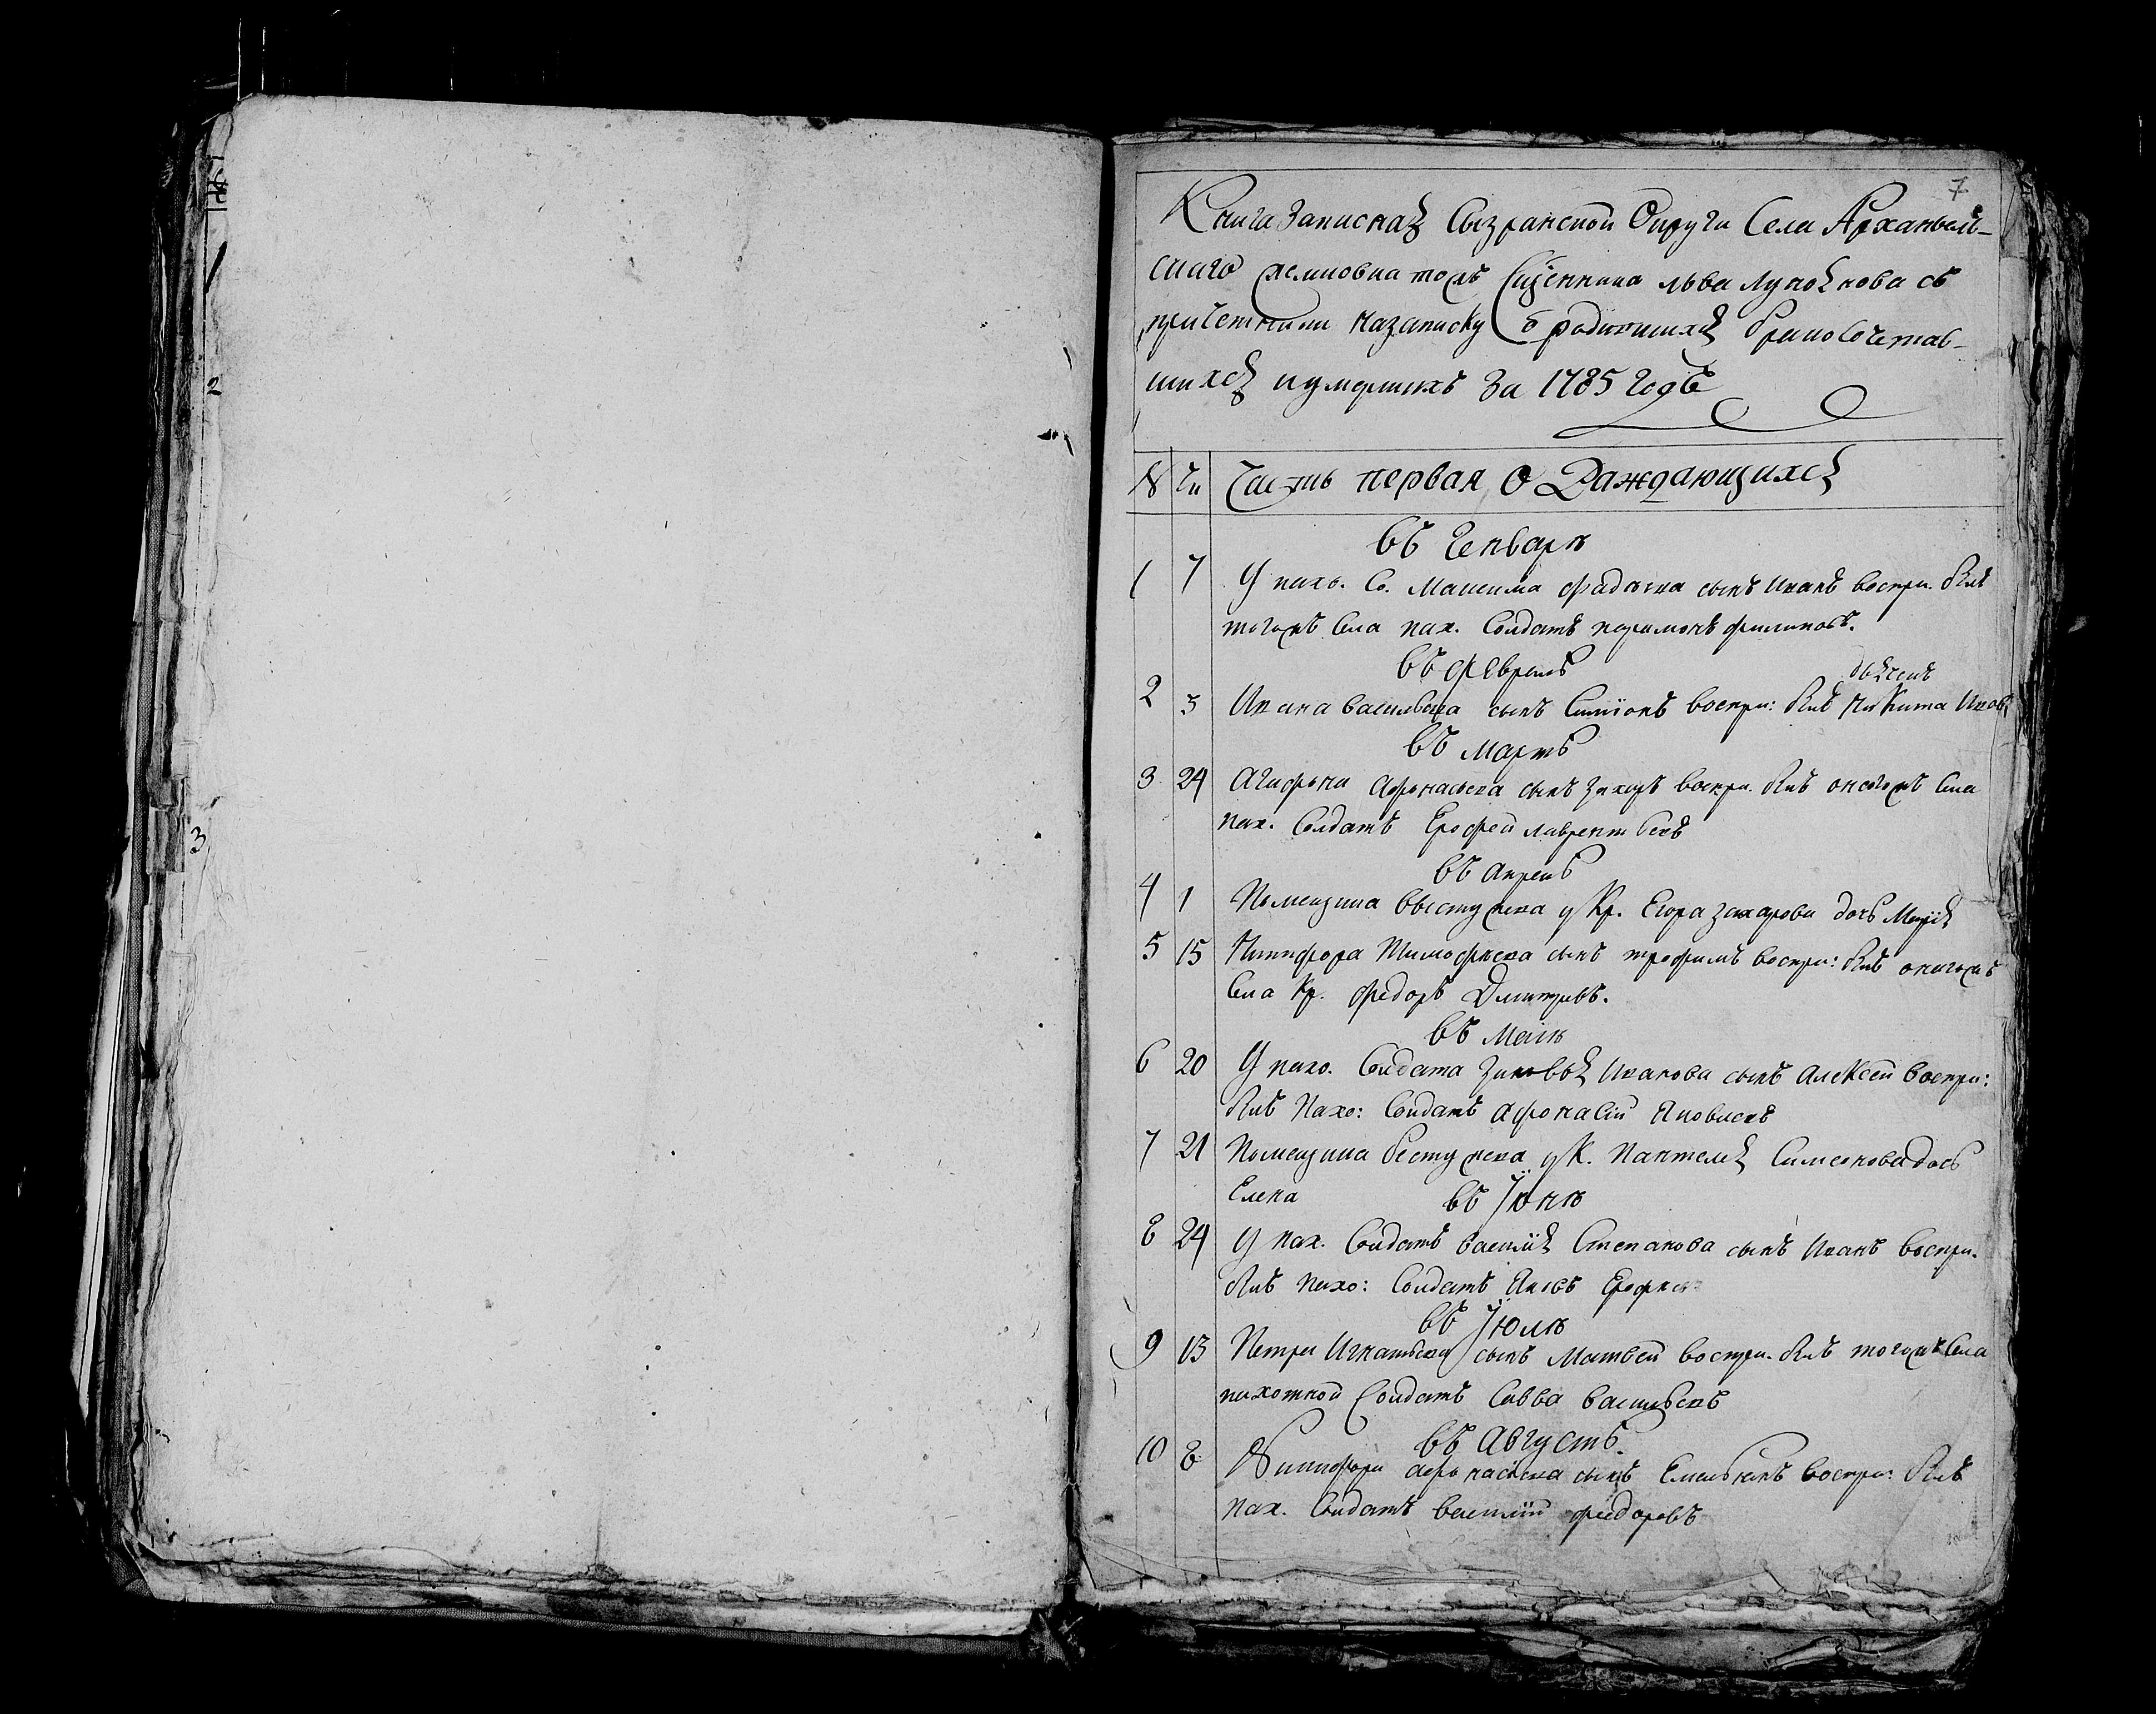 7
Книга Записная Сызранской Округи Села Архангель-
скаго тожъ Сщенника льва Лукоянова съ
причетники назаписку о родившихся бракосочетав-
шихся иумершихъ За 1785 годъ
№ Чи Часть первая О Раждающихся
въ Генваре
1 7 У пахъ. Со. Максима фадѣева сынъ Иванъ воспри. былъ
тогожъ Села пах. Солдатъ парамонъ филиповъ.
въ февралѣ
2 3 Ивана васильева сынъ Симионъ воспри: былъ Никита
въ мартѣ
3 24 Агафона Афонасьева сынъ захаръ воспри. былъ оногожъ Села
пах. Солдатъ Ерофей лаврентьевъ
въ апрелѣ
4 1 Помещика бестужева у Кр. Егора захарова дочь Марія
5 15 Никифора Тимофѣева сынъ трофимъ воспри: былъ оногожъ
Села Кр. федоръ Дмитревъ.
въ Маіѣ
6 20 У пахо. Солдата Зиновья Иванова сынъ Алексей воспри:
былъ Пахо: Солдатъ афонасій Яковлевъ
7 21 Помещика бестужева у К. Пантелея Симеонова дочь
Елена
въ Іюнѣ
8 24 У пах. Солдатъ василія Степанова сынъ Иванъ воспри.
былъ пахо: Солдатъ Яковъ
въ Іюлѣ
9 13 Петра Игнатьева сынъ Матвей воспри. былъ тогожъ Села
пахотной Солдатъ Савва васильевъ
въ Августѣ.
10 8 Никифора афонасьева сынъ Емельянъ воспри: былъ
пах. Солдатъ василій федоровъ
2
3